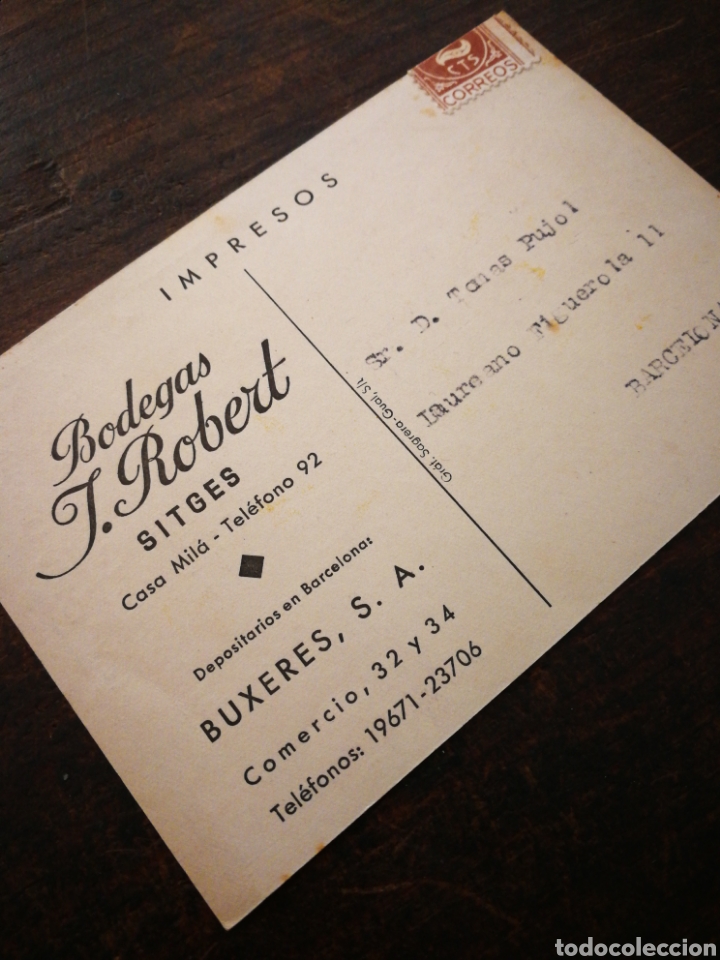 2
CTS
CORREOS
IMPRESOS
Bodegas
J. Robert
SITGES
Casa Milá - Teléfono 92
Depositarios en Barcelona:
BUXERES, S. A.
Comercio, 32 y 34
Teléfonos: 19671-23706
Gráf. Sagrera-Gual, S/t.
Sr. D. Tanas Pujol
Laureano Figuerola 11
BARCELONA
todocoleccion